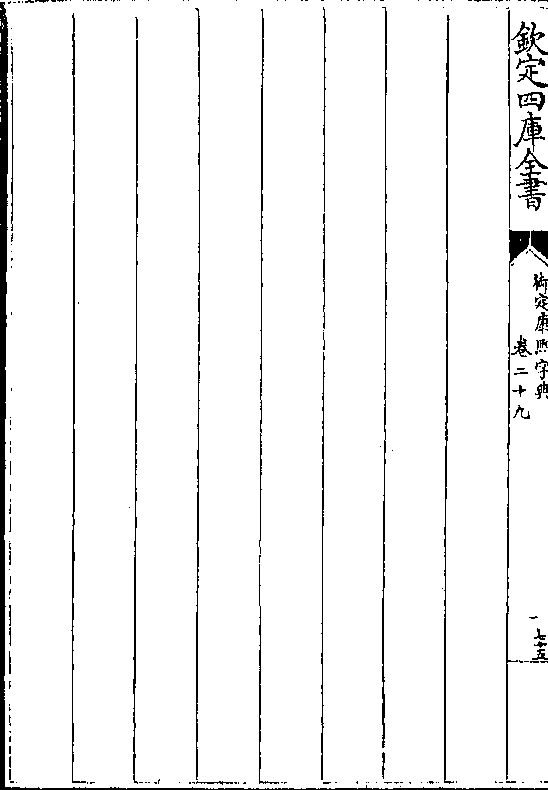 欽定四庫全書
御定康熙字典
卷二十九
七十五